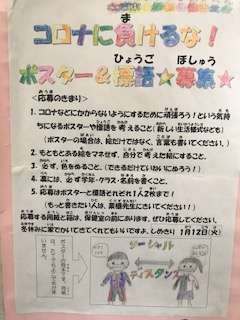 コロナに負けるな！
ポスター&標語☆募集☆
<応募のきまり>
1. コロナなどにかからないようにするために頑張ろう！という気持
ちになるポスターや標語を考えること（新しい生活様式なども）
（ポスターの場合は、絵だけではなく、言葉も書いてください。）
2. もともとある絵をマネせず、自分で考えた絵にすること。
3. 必ず、色をぬること。（できるだけ白いところがないように！）
4. 裏には、必ず学年・クラス・名前を書くこと。
5. 応募はポスターと標語それぞれ1人2枚まで！
応募する用紙と箱は、保健室の前にあります。ぜひ応募してください。
冬休みに家でかいてきてくれてもいいですよ。しめきり 1月12日(火)
ソーシャル
ディスタンス